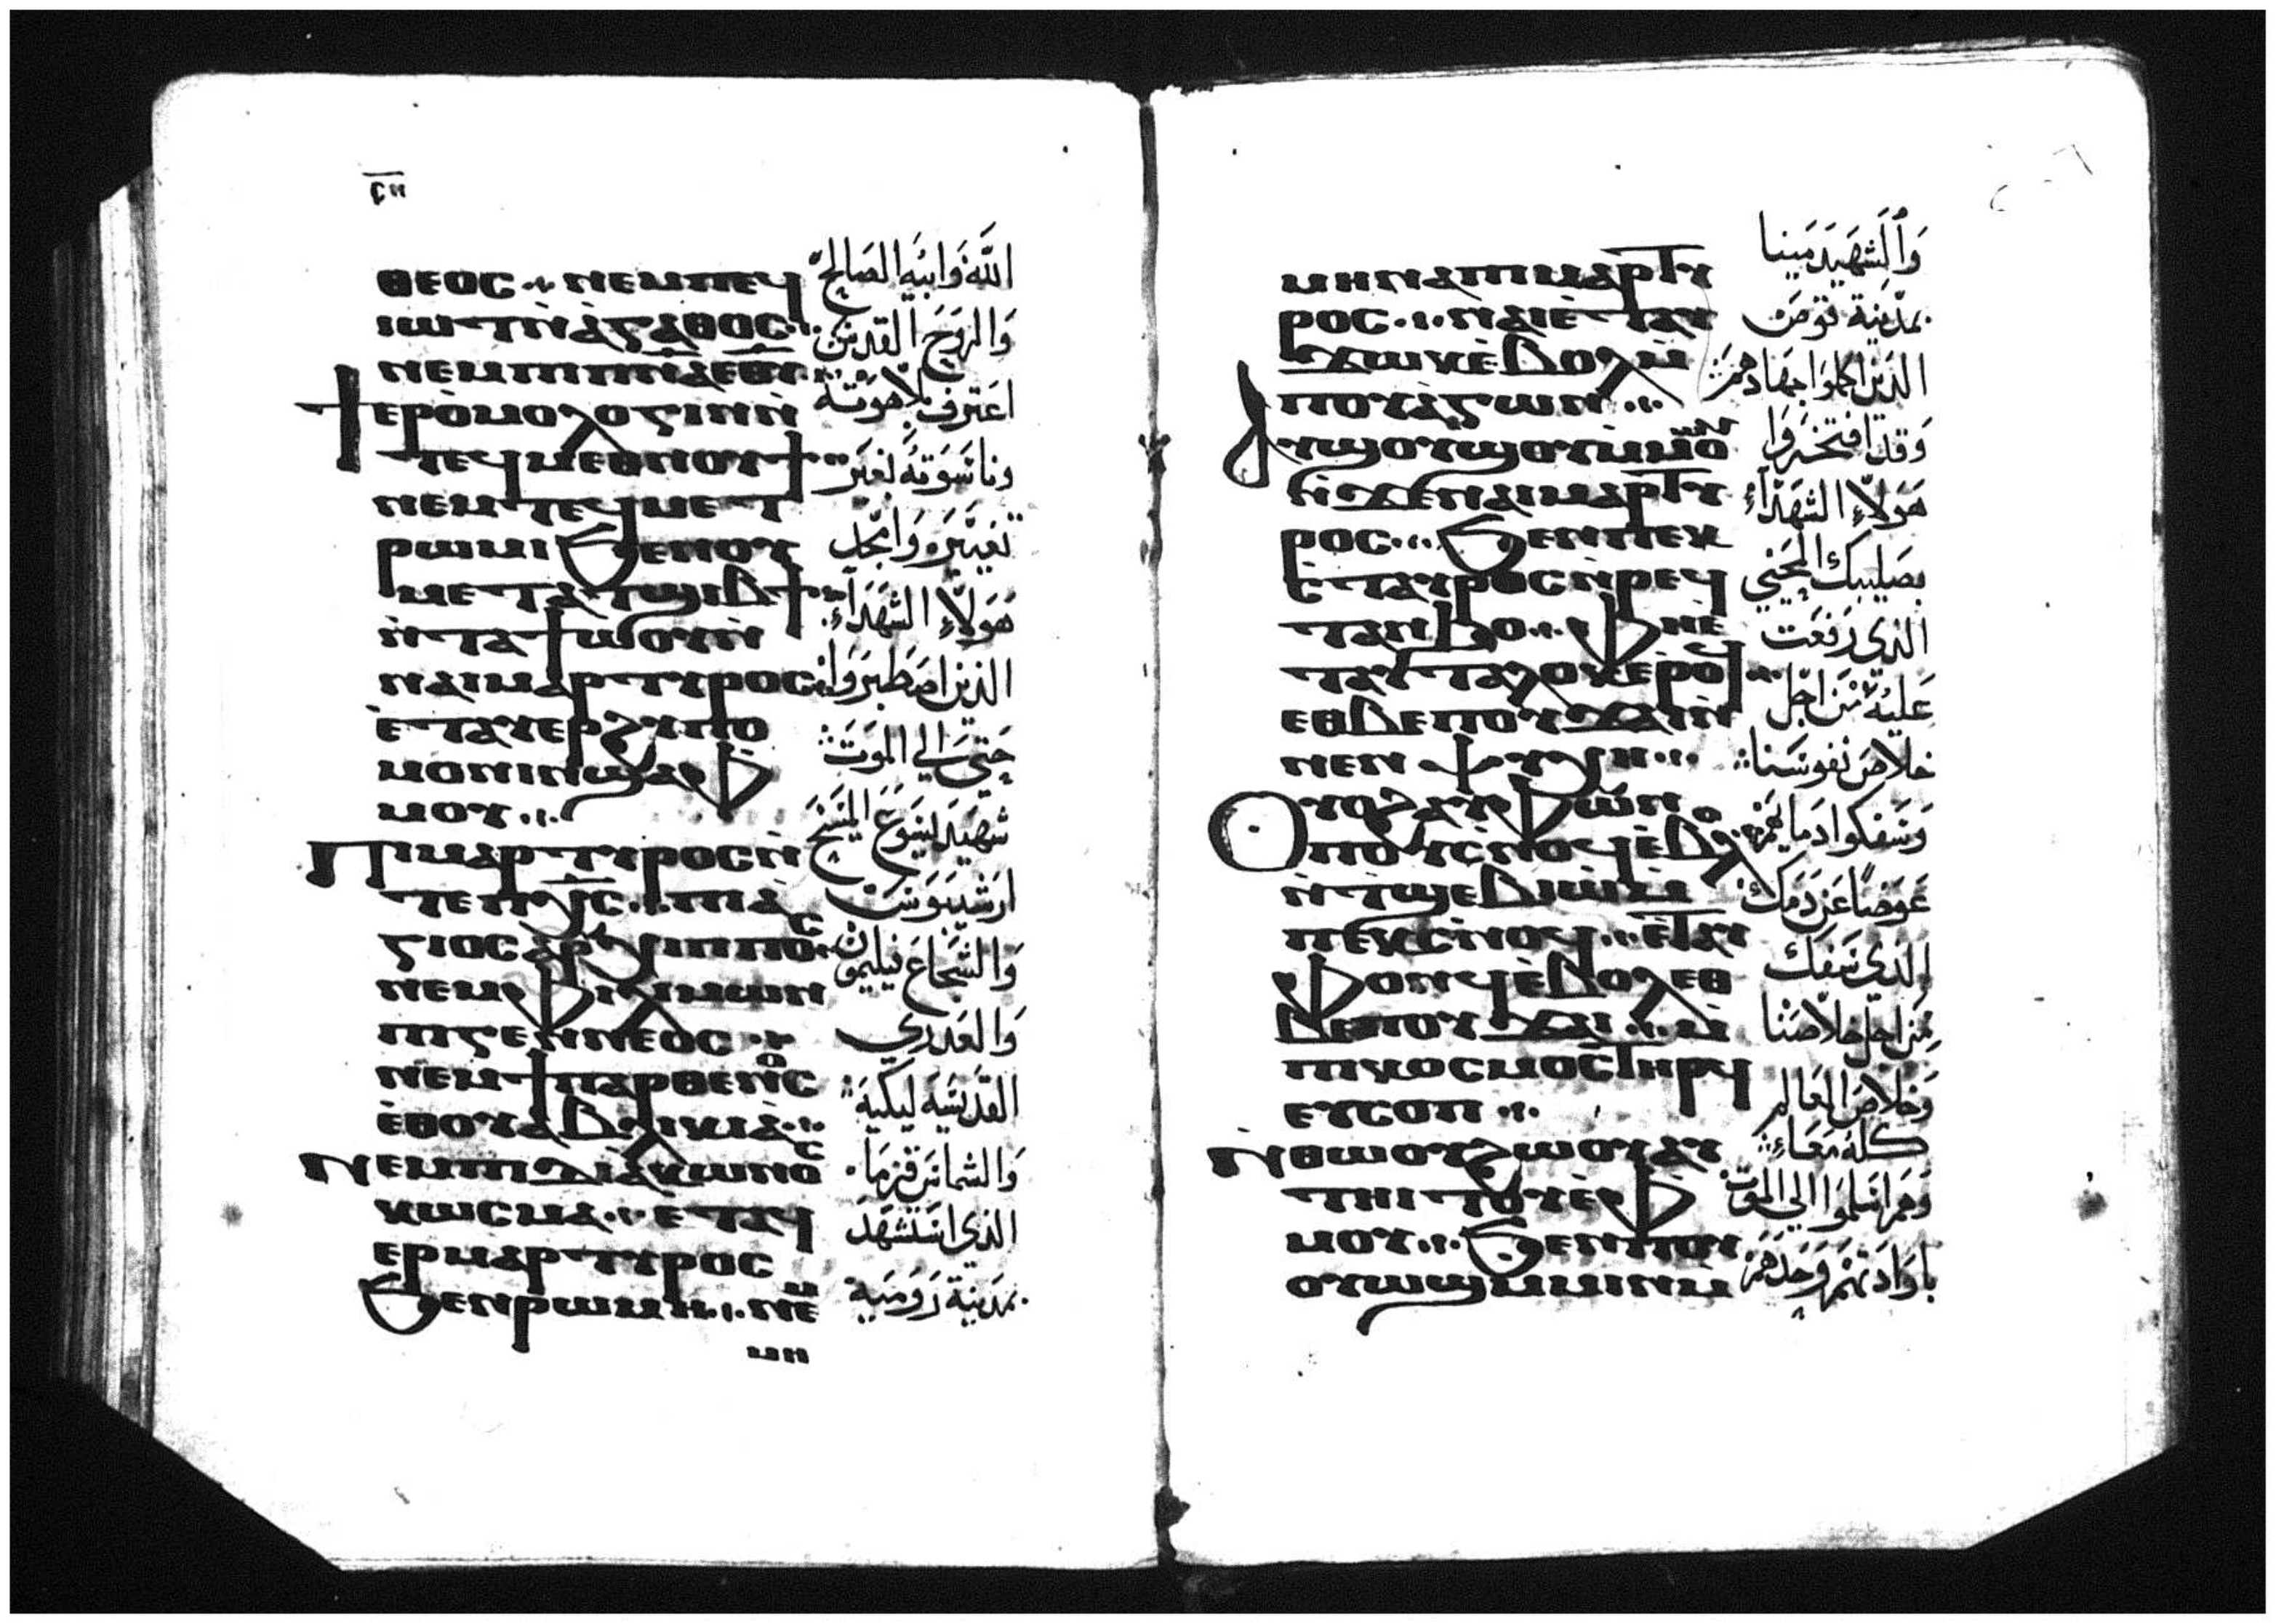 ⲥⲏ
ⲑⲉⲟⲥ ⲛⲉⲙⲡⲉϥ
ⲓⲱⲧⲛ̀ⲁⲅⲁⲑⲟⲥ
ⲛⲉⲙⲡⲓⲡⲛ̅ⲁ̅ⲉ̅ⲑ̅ⲩ̅
ϯⲉⲣⲟ̀ⲙⲟⲗⲟⲅⲓⲛⲛ̀
ⲧⲉϥⲙⲉⲑⲛⲟⲩϯ
ⲛⲉⲙⲧⲉϥⲙⲉⲧ
ⲣⲱⲙⲓ ϧⲉⲛⲟⲩ
ⲙⲉⲧⲁⲧϣⲓⲃϯ
ⲛ̀ⲧⲁϯⲱ̀ⲟⲩⲛ̀
ⲛⲁⲓⲙⲁⲣⲧⲩⲣⲟⲥ
ⲉ̀ⲧⲁⲩⲉⲣϩⲩⲡⲟ
ⲙⲟⲛⲓⲛϣⲁⲫ
ⲙⲟⲩ
Ⲡⲓⲙⲁⲣⲧⲩⲣⲟⲥⲛ̀
ⲧⲉⲡⲭ̅ⲥ̅ ⲡⲓⲁ̀
ⲅⲓⲟⲥⲁⲣⲭⲓⲡⲡⲟⲥ
ⲛⲉⲙⲫⲓⲗⲓⲙⲱⲛ
ⲡⲓⲅⲉⲛⲛⲉⲟⲥ
ⲛⲉⲙϯⲡⲁⲣⲑⲉⲛⲟⲥ
ⲉ̀ⲑⲟⲩⲁⲃⲗⲓⲕⲓⲁ̀
Ⲛⲉⲙⲡⲓⲇⲓⲁⲕⲱⲛⲟⲥ
ⲕⲱⲥⲙⲁ ⲉⲧⲁϥ
ⲉⲣⲙⲁⲣⲧⲩⲣⲟⲥ
ϧⲉⲛⲣⲱⲙⲏ ⲛⲉⲙ
ⲙⲏ
الله وابيه الصالح
والروح القدس
اعترف بلاهوته
وناسوته بغير
تغيير وامجد
هولاء الشهداء
الذين اصطبروا
حتى الي الموت
شهيد ليسوع المسيح
ارشيبوس
والشجاع فيليمون
والعدري
القديسه ليكيه
والشماس قزما
الذي استشهد
بمدينة رومية
ⲙⲏⲛⲁⲡⲓⲙⲁⲣⲧⲩ
ⲣⲟⲥ ⲛⲁⲓⲉ̀ⲧⲁⲩ
ϫⲱⲕⲉ̀ⲃⲟⲗⲙ̀
ⲡⲟⲩⲁⲅⲱⲛ
Ⲁⲩϣⲟⲩϣⲟⲩⲙ̀ⲙⲱⲟⲩ
ⲛ̀ϫⲉⲛⲁⲓⲙⲁⲣⲧⲩ
ⲣⲟⲥ ϧⲉⲛⲡⲉⲕ
ⲥ̀ⲧⲁⲩⲣⲟⲥⲛ̀ⲣⲉϥ
ⲧⲁⲛϧⲟ ⲫⲏⲉ̀
ⲧⲁⲩⲧⲁⲗⲟⲕⲉ̀ⲣⲟϥ
ⲉⲑⲃⲉⲡⲟⲩϫⲁⲓⲛ̀
ⲛⲉⲛⲯⲩⲭⲏ
Ⲟⲩⲟϩⲁⲩⲫⲱⲛ
ⲡⲟⲩⲥ̀ⲛⲟϥⲉ̀ⲃⲟⲗ
ⲛ̀ⲧϣⲉⲃⲓⲱ̀ⲙ̀
ⲡⲉⲕⲥ̀ⲛⲟϥ ⲉ̀ⲧⲁⲩ
ⲫⲟⲛϥⲉ̀ⲃⲟⲗⲉⲑ
ⲃⲉⲡⲟⲩϫⲁⲓ ⲙ̀
ⲡⲓⲕⲟⲥⲙⲟⲥⲧⲏⲣϥ
ⲉⲩⲥⲟⲡ
Ⲛ̀ⲑⲱⲟⲩϩⲱⲟⲩⲁⲩ
ⲧⲏⲓⲧⲟⲩⲉ̀ⲫ
ⲙⲟⲩ ϧⲉⲛⲡⲟⲩ
ⲟⲩⲱϣⲙ̀ⲙⲓⲛⲙ̀
والشهيد مينا
بمدينة
الذين اكملوا جهادهم
وقد افتخروا
هولاء الشهداء
بصليبك المحيي
الذي رفعت
عليه من اجل
خلاص نفوسنا
وسفكوا دماهم
عوضا عن دمك
الذي سفك
من اجل خلاصنا
وخلاص العالم
كله معا
وهم اسلموا الي الموت
بارادتهم وحدهم